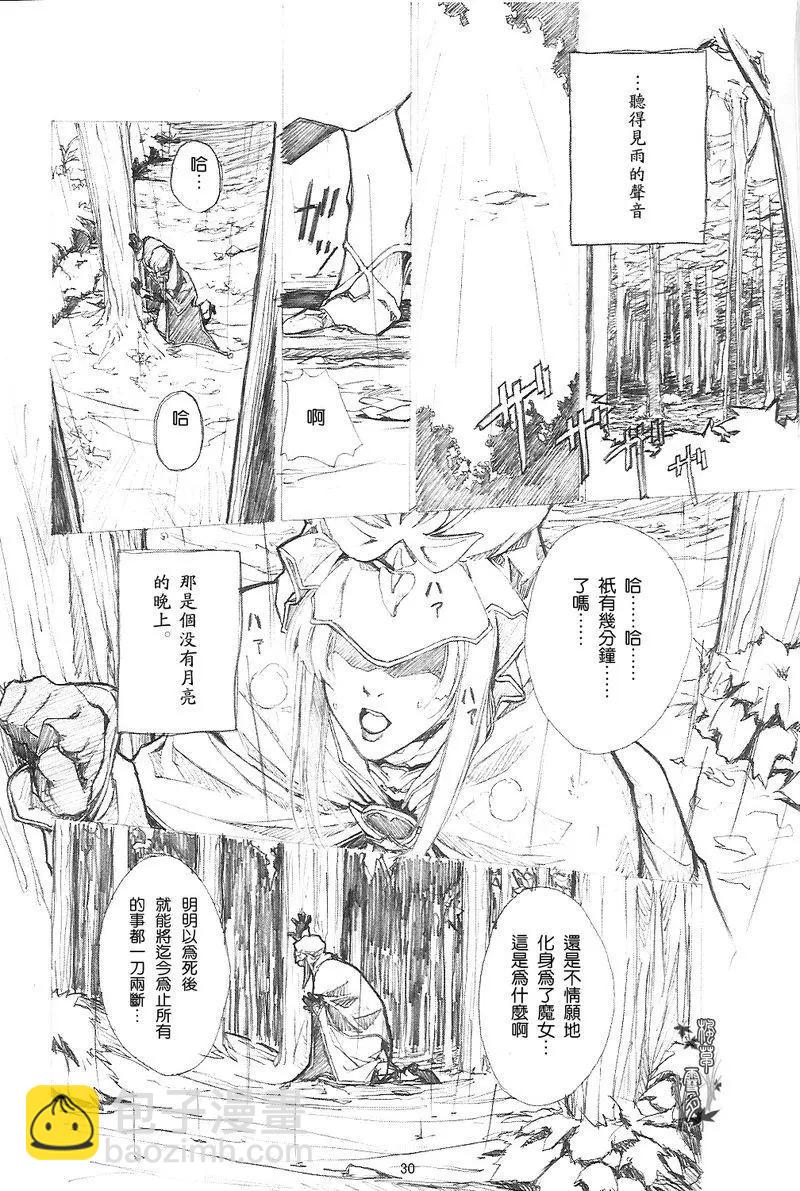 …聽得見雨的聲音
ザザザ
ザザザ
啊
哈…
哈
哈……哈……
祇有幾分鐘……
了嗎……
ハァ
ハァ
ハァ
那是個没有月亮
的晚上。
還是不情願地
化身爲了魔女…
這是爲什麼啊
明明以爲死後
就能將迄今爲止所有
的事都一刀兩斷…
包子漫畫
baozimh.com
30